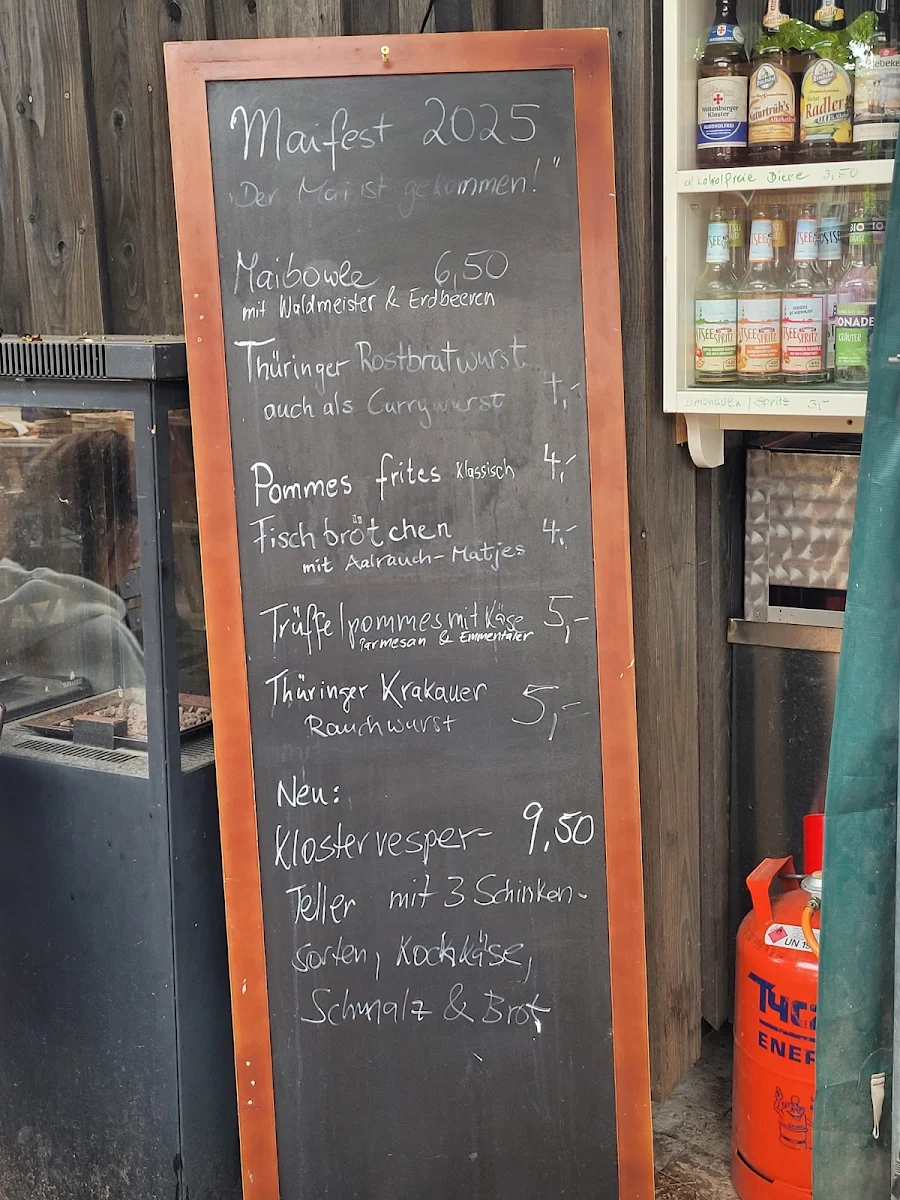 Maifest 2025
„Der Mai ist gekommen!"
Maibowle 6,50
mit Waldmeister & Erdbeeren
Thüringer Rostbratwurst
auch als Currywurst 4,-
Pommes frites Klassisch 4,-
Fischbrötchen 4,-
mit Aalrauch-Matjes
Trüffelpommes mit Käse 5,-
Parmesan & Emmentaler
Thüringer Krakauer
Rauchwurst 5,-
Neu:
Klostervesper- 9,50
Teller mit 3 Schinken-
sorten, Kochkäse,
Schmalz & Brot
Weltenburger
Kloster
ALKOHOLFREI
Naturtrüb's
Alkoholfrei
Natur
Radler
alkoholfreie Biere 3,50
TSEE
SPRITZ
TSEE
SPRITZ
TSEE
SPRITZ
BIO
ONADE
KRÄUTER
Limonaden / Spritz 3,-
UN 19
Tycz
ENER